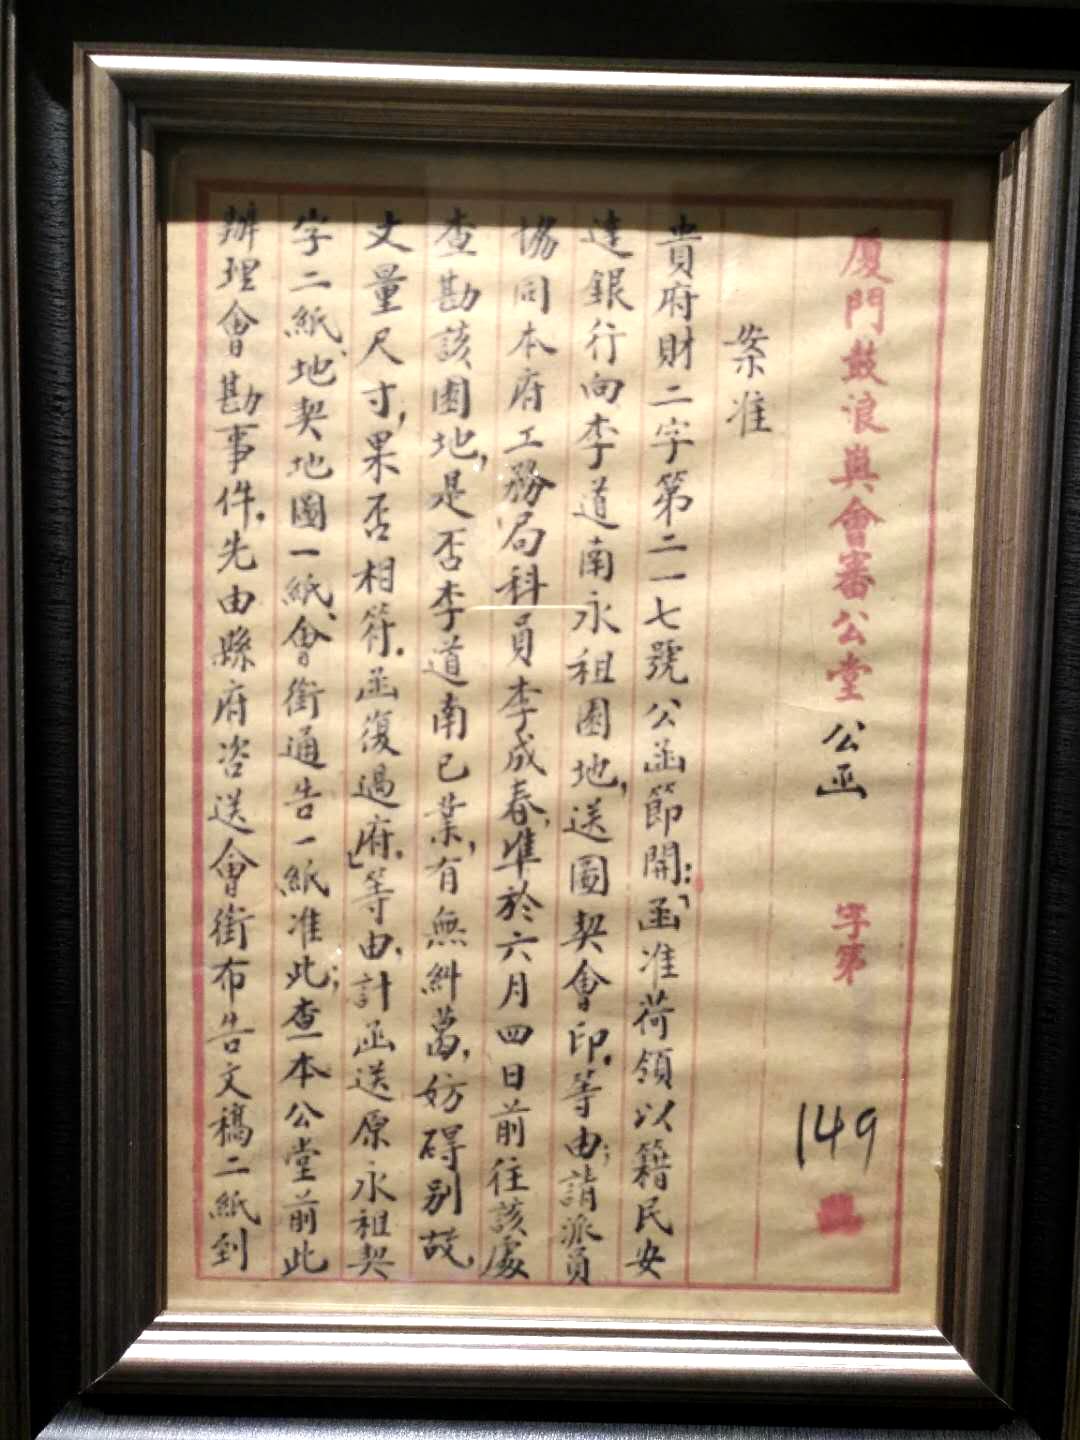 厦門鼓浪嶼會審公堂公函 字第 149 號
案准
貴府財二字第二一七號公函節開：「函准荷領以籍民安
達銀行向李道南永租園地，送圖契會印。等由；請派員
協同本府工務局科員李成春，準於六月四日前往該處
查勘該園地，是否李道南己業，有無糾葛，妨碍别故，
丈量尺寸，果否相符。函復過府。」等由，計函送原永租契
字二紙、地契地圖一紙、會銜通告一紙准此；查本公堂前此
辦理會勘事件，先由縣府咨送會銜布告文稿二紙到